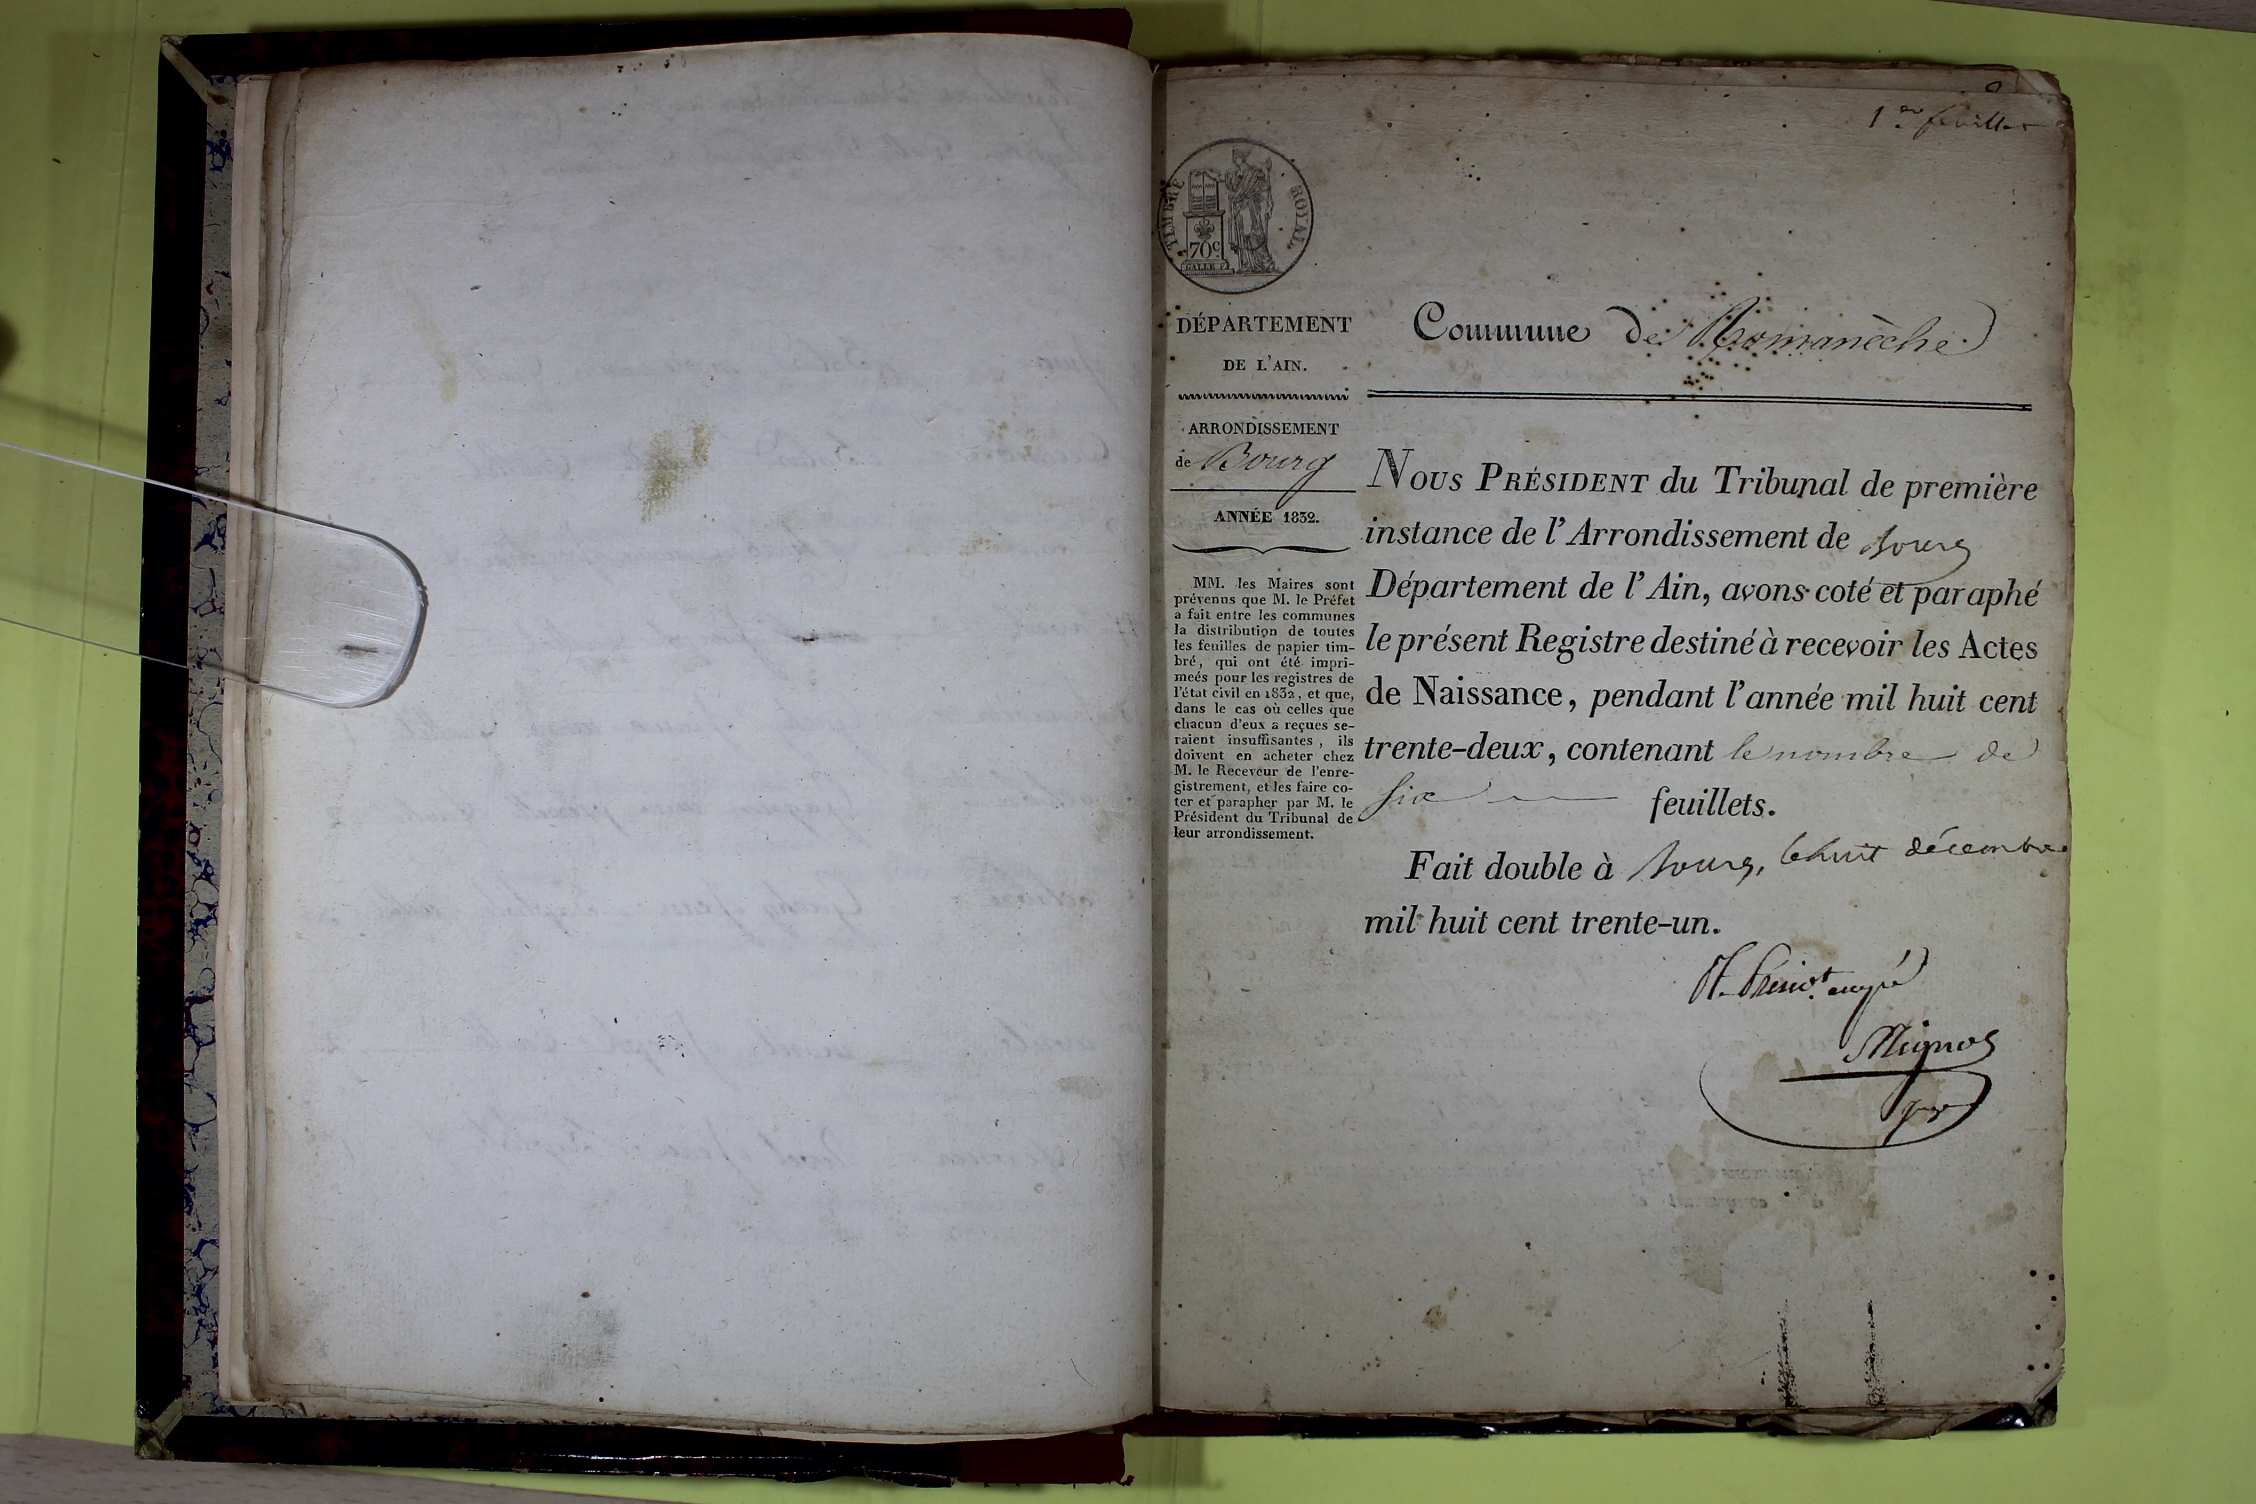 1er feuillet
TIMBRE ROYAL
70 c
DÉPARTEMENT
DE L'AIN.
ARRONDISSEMENT
de Bourg
ANNÉE 1832.
MM. les Maires sont
prévenus que M. le Préfet
a fait entre les communes
la distribution de toutes
les feuilles de papier tim-
bré, qui ont été impri-
meés pour les registres de
l'état civil en 1832, et que,
dans le cas où celles que
chacun d'eux a reçues se-
raient insuffisantes, ils
doivent en acheter chez
M. le Receveur de l'enre-
gistrement, et les faire co-
ter et parapher par M. le
Président du Tribunal de
leur arrondissement.
Commune de Romanèche
NOUS PRÉSIDENT du Tribunal de première
instance de l'Arrondissement de Bourg
Département de l'Ain, avons coté et paraphé
le présent Registre destiné à recevoir les Actes
de Naissance, pendant l'année mil huit cent
trente-deux, contenant le nombre de
six feuillets.
Fait double à Bourg, le huit décembre
mil huit cent trente-un.